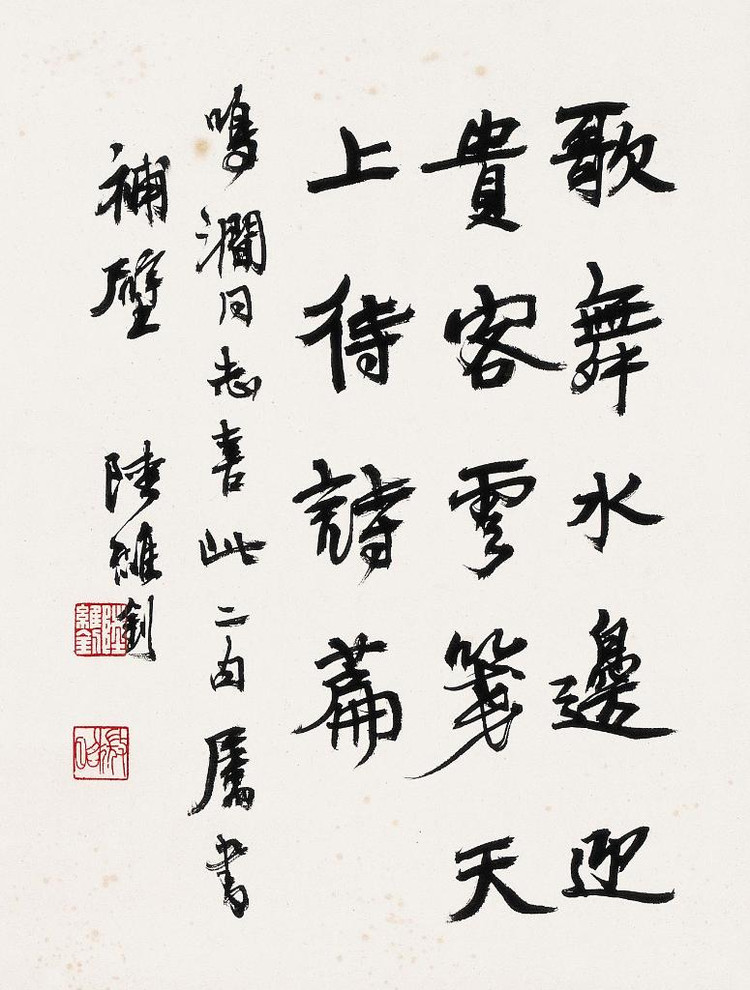 歌舞水邊迎
貴客雲箋天
上待詩篇
鳴澗同志喜此二句屬書
補壁 陸維釗
陸維釗